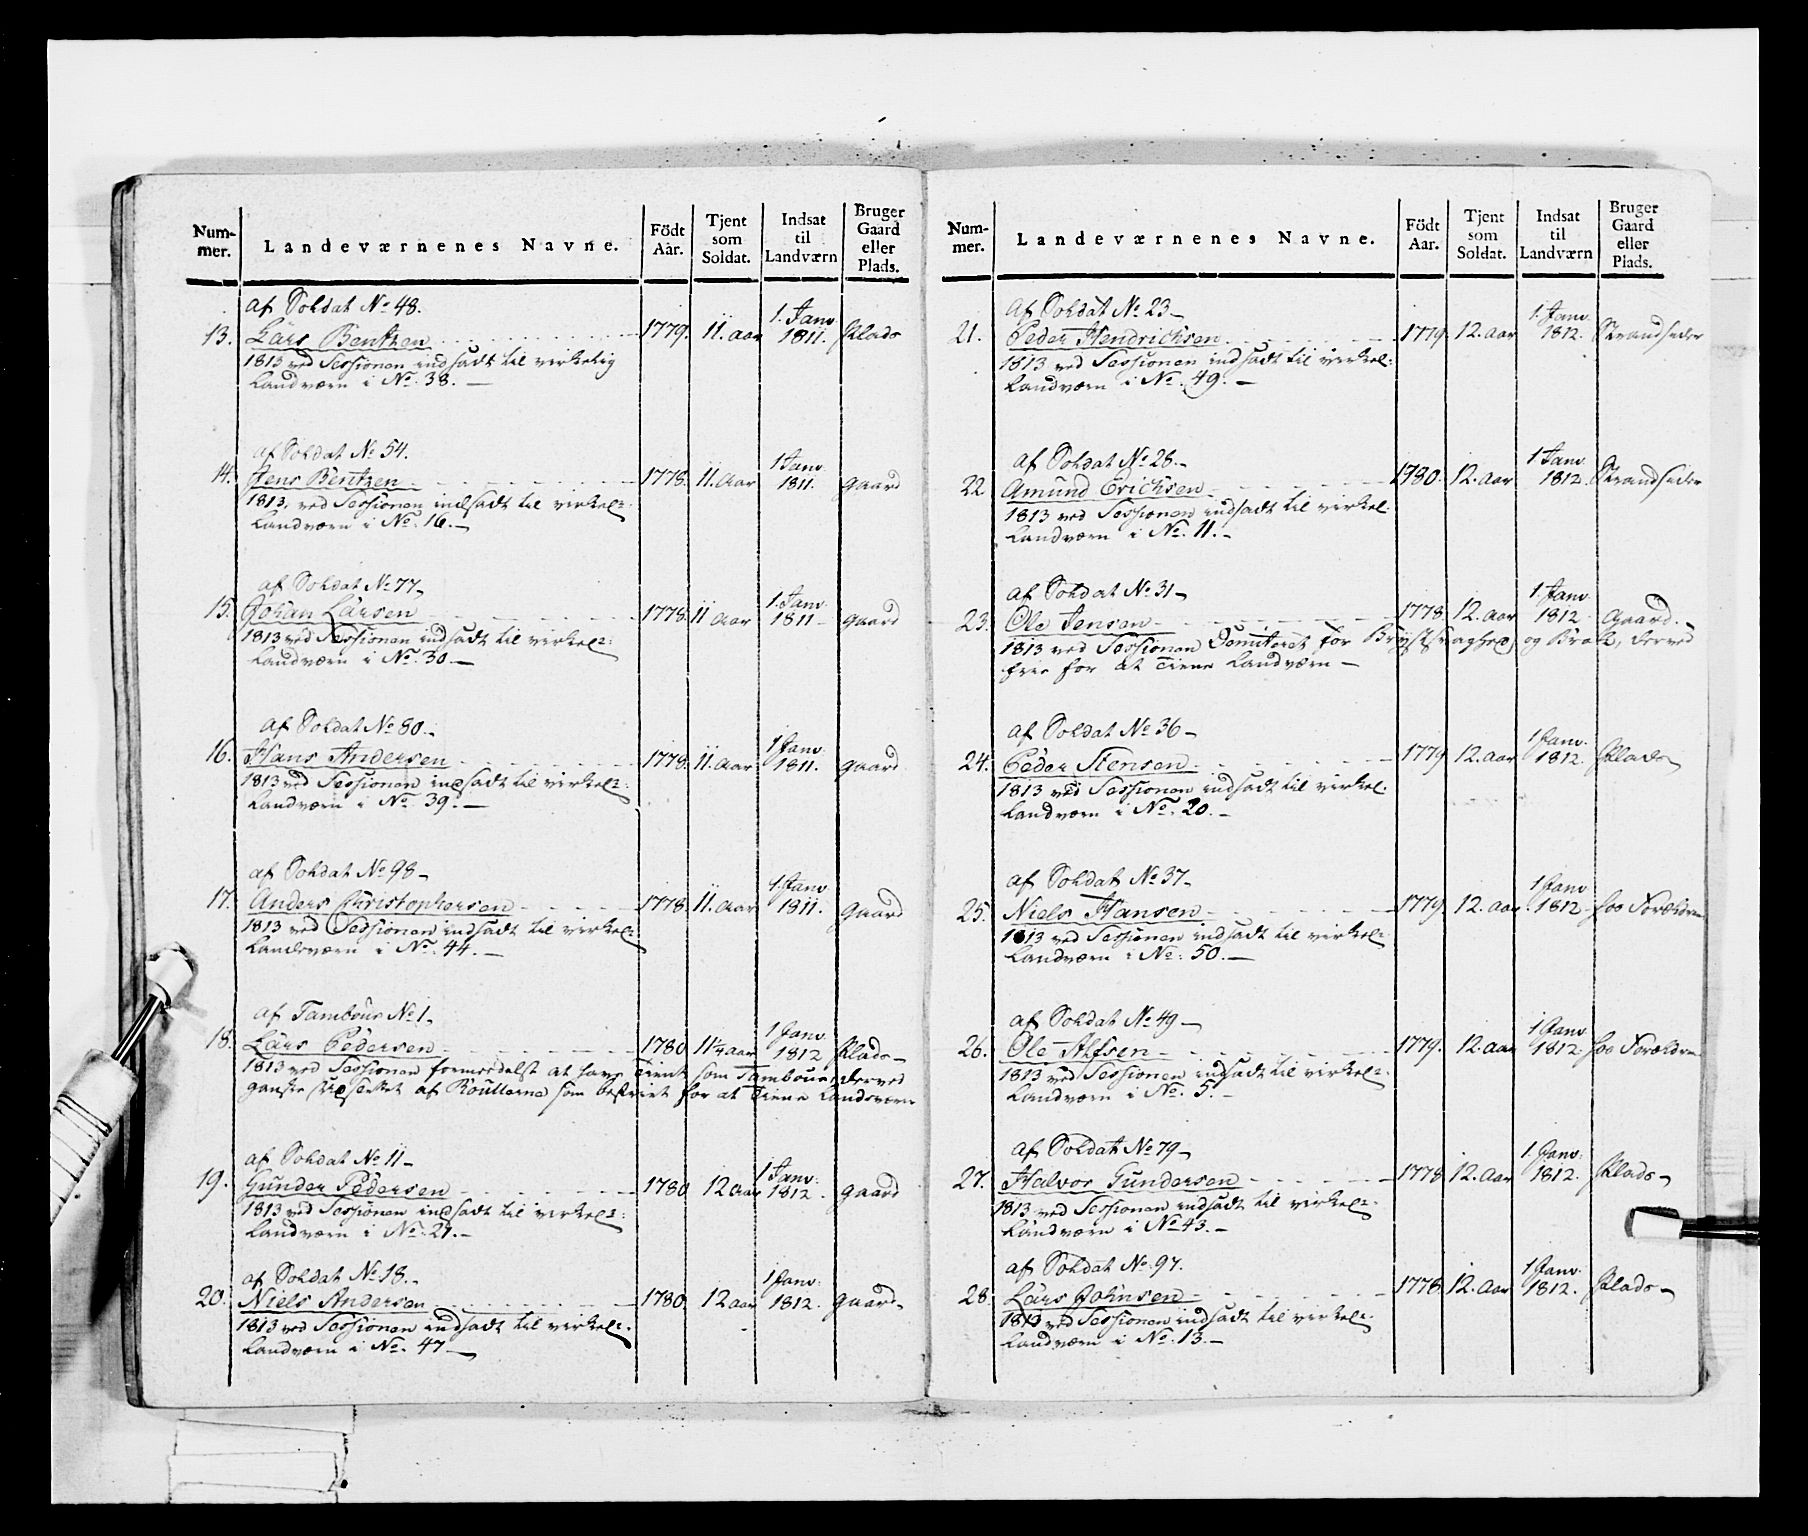 Num-mer. Landeværnenes Navne. Födt Aar. Tjent som Soldat. Indsat til Landværn Bruger Gaard eller Plads.
af Soldat No 48.
13. Lars Bentzen 1779. 11. Aar 1. Janv. 1811. Plads
1813 ved Sessionen indsadt til virkelig
Landværn i No. 38. —
af Soldat No 54.
14. Jens Bentzen 1778. 11. Aar 1 Janv. 1811. Gaard
1813, ved Sessionen indsadt til virkel:
Landværn i No. 16. —
af Soldat No 77
15. Johan Larsen 1778. 11 Aar 1. Janv. 1811 — Gaard
1813 ved Sessionen indsadt til virkel:
Landværn i No. 30. —
af Soldat No 80.
16. Hans Andersen 1778. 11. Aar 1 Janv. 1811. Gaard
1813 ved Sessionen indsadt til virkel:
Landværn i No. 39. —
af Soldat No 98 —
17. Anders Christophersen 1778. 11. Aar 1. Janv 1811. Gaard
1813 ved Sessionen indsadt til virkel:
Landeværn i No. 44. —
af Tambour No 1.
18. Lars Pedersen 1780 11 1/4 Aar 1 Janv. 1812 Plads —
1813 ved Sessionen formedelst at have Tient som Tambour, derved
ganske af Roullerne som befriet for at Tiene Landeværn
af Soldat No 11 —
19. Gunder Pedersen 1780 12 Aar 1 Janv: 1812. Gaard
1813 ved Sessionen indsadt til virkel:
Landværn i No. 21. —
af Soldat No 18. —
20. Niels Andersen 1780 12 Aar 1 Janv: 1812. Gaard
1813 ved Sessionen indsadt til virkel:
Landværn i No. 47 —
Num-mer. Landeværnenes Navne. Födt Aar. Tjent som Soldat. Indsat til Landværn Bruger Gaard eller Plads.
af Soldat No 23 —
21. Peder Hendrichsen 1779. 12. Aar 1. Janv. 1812. Strandsider
1813 ved Sessionen indsadt til virkel:
Landværn i No. 49. —
af Soldat No 28. —
22. Amund Erichsen 1780. 12. Aar 1 Janv. 1812. Strandsider
1813 ved Sessionen indsadt til virkel.
Landværn i No. 11. —
af Soldat No 31
23. Ole Jensen 1778 12. Aar 1. Janv. 1812. Gaard. —
1813 ved Sessionen Demiteret for Brystsvaghed og Brok, derved
frie for at Tiene Landværn —
af Soldat No 36 —
24. Peder Stensen 1779 12. Aar 1 Janv. 1812. Plads
1813 ved Sessionen indsadt til virkel.
Landværn i No. 20. —
af Soldat No 37
25. Niels Hansen 1779. 12. Aar 1 Janv 1812. hos Forældrene
1813 ved Sessionen indsadt til virkel:
Landværn i No: 50. —
af Soldat No 49 —
26. Ole Alfsen 1779. 12. Aar 1 Janv 1812. hos Forældrene
1813 ved Sessionen indsadt til virkel:
Landværn i No. 5. —
af Soldat No 79
27. Halvor Gundersen 1778 12. Aar 1. Janv: 1812. Plads
1813 ved Sessionen indsadt til virkel:
Landværn i No 43. —
af Soldat No. 97.
28. Lars Johnsen 1778. 12. Aar 1 Janv. 1812. Plads
1813 ved Sessionen indsadt til virkel:
Landværn i No. 13. —